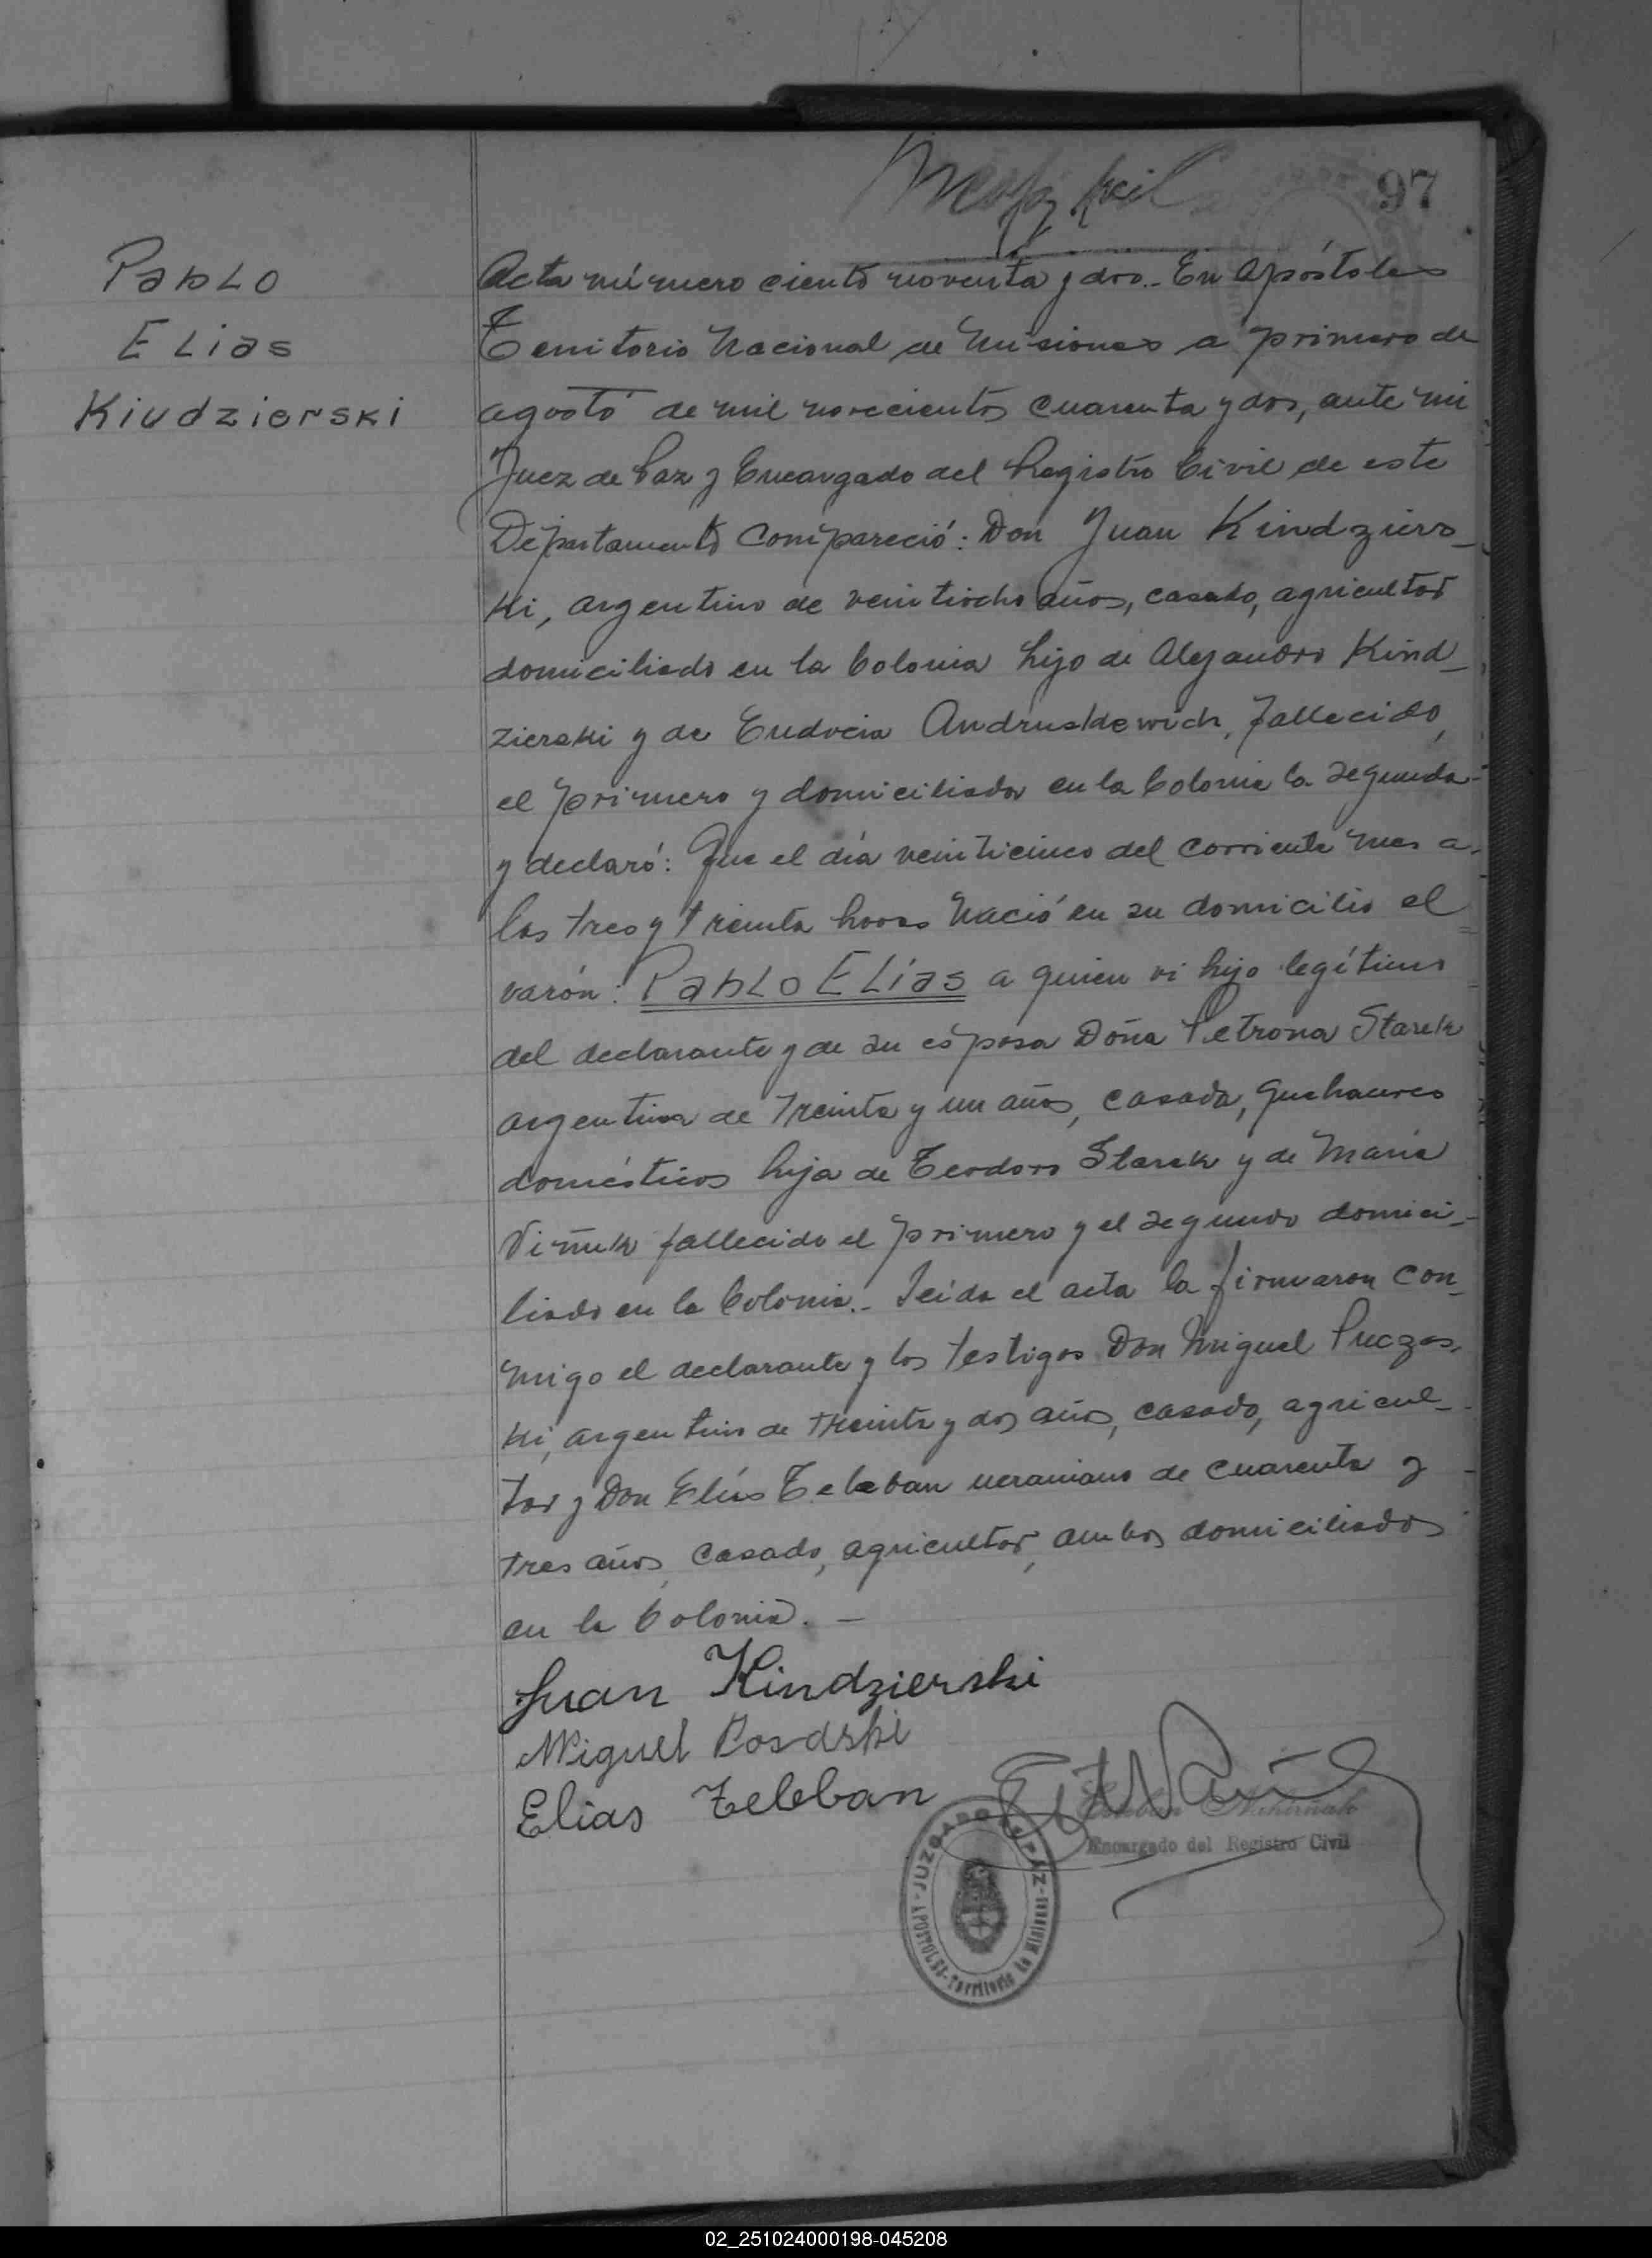 97
Pablo
Elias
Kiudzierski
Acta número ciento noventa y dos.- En Apóstoles
Territorio Nacional de Misiones a primero de
agosto de mil novecientos cuarenta y dos, ante mi
Juez de Paz y Encargado del Registro Civil de este
Departamento Compareció: Don Juan Kindziers_
ki, argentino de veintiocho años, casado, agricultor
domiciliado en la Colonia hijo de Alejandro Kind_
zierski y de Eudocia Andruskewich, fallecido,
el primero y domiciliada en la Colonia la segunda-
y declaró: Que el día veinticinco del corriente mes a
las tres y treinta horas Nació en su domicilio el
varón: Pablo Elias a quien vi hijo legítimo
del declarante y de su esposa Doña Petrona Starek
argentina de treinta y un años, casada, quehaceres
domésticos hija de Teodoro Starek y de María
fallecido el primero y el segundo domici_
liado en la Colonia.- Leída el acta la firmaron con_
migo el declarante y los testigos Don Miguel Puczas,
ki, argentino de treinta y dos años, casado, agricul_
tor y Don Elías Teleban ucraniano de cuarenta y
tres años, casado, agricultor, ambos domiciliados
en la Colonia. -
Juan Kindzierski
Miguel
Elias Teleban
Esteban
Encargado del Registro Civil
JUZGADO DE PAZ - APOSTOLES - Territorio de Misiones
02_251024000198-045208